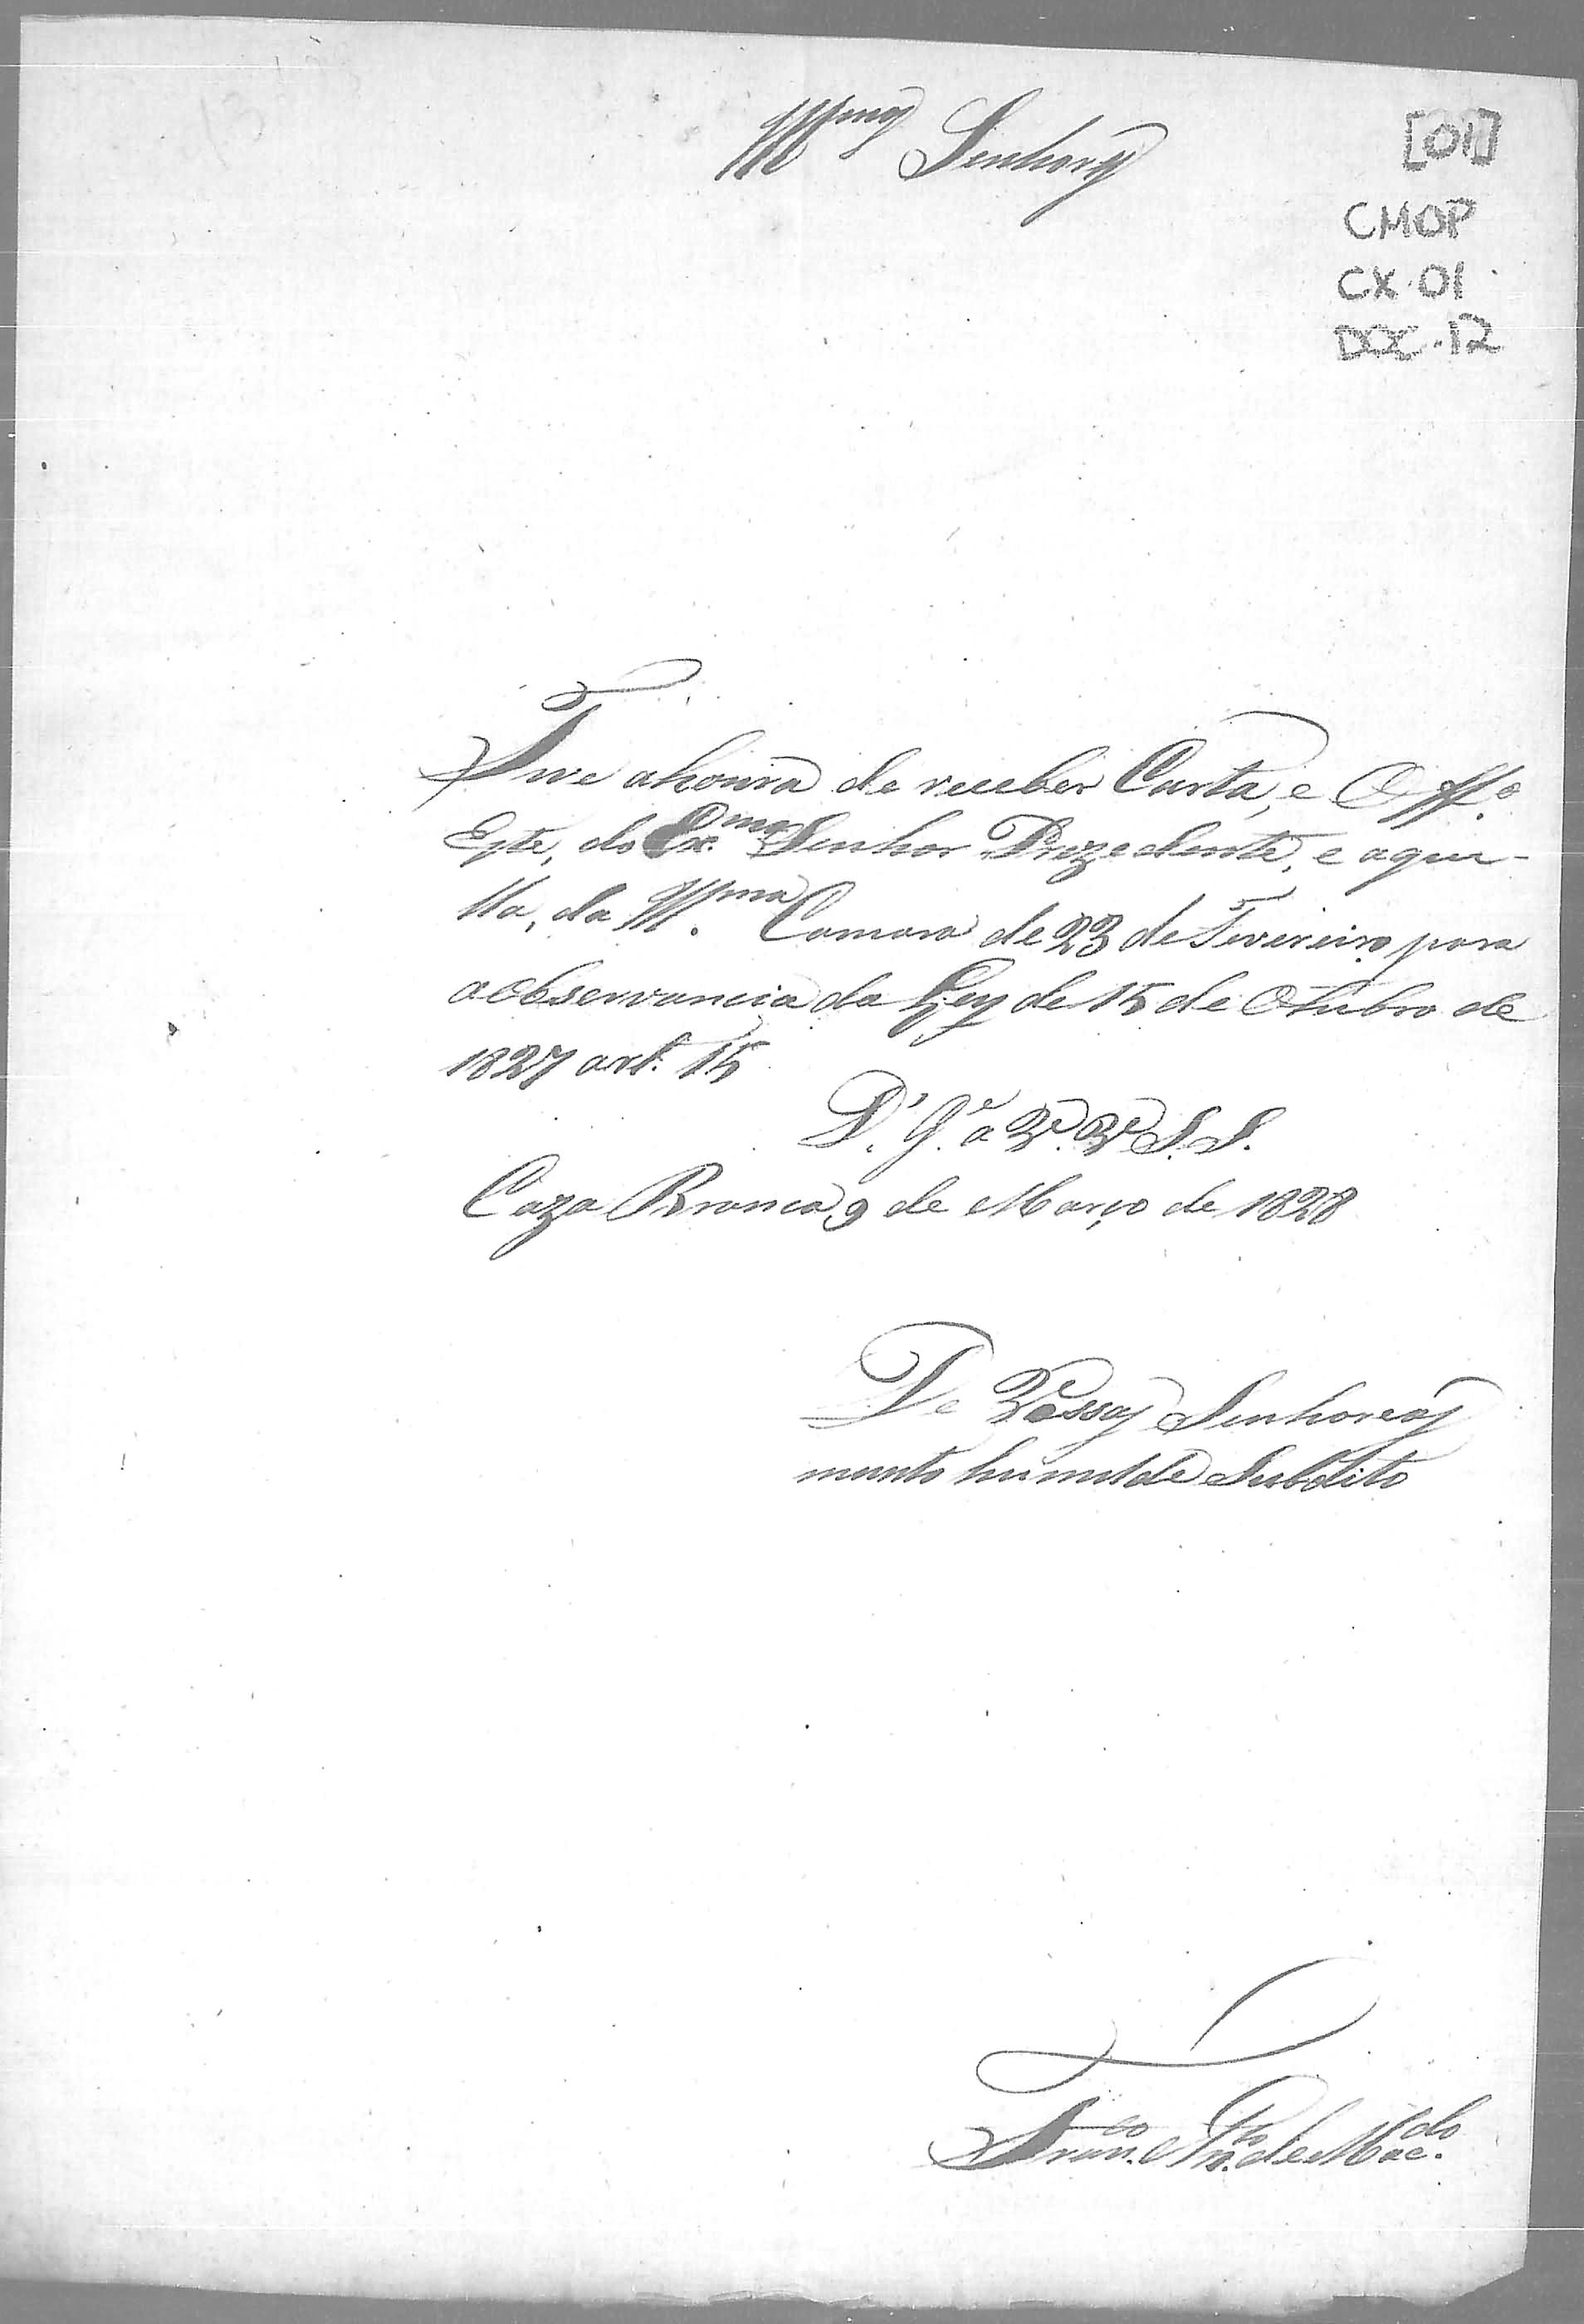 Ill.mos Senhores
[01]
CMOP
CX.01
DOC.12
Tive ahonra de receber Carta, e Off.o
Este, do Ex.mo Senhor Prezedente, e aque-
lla, da Ill.ma Camara de 23 de Fevereiro para
aobservancia da Ley de 15 de Otubro de
1827 art. 15
D.s G.e a V.V.S.S.
Caza Branca 9 de Março de 1828
De Vossas Senhorias
muinto humilde Subdito
Fran.co de Mac.do